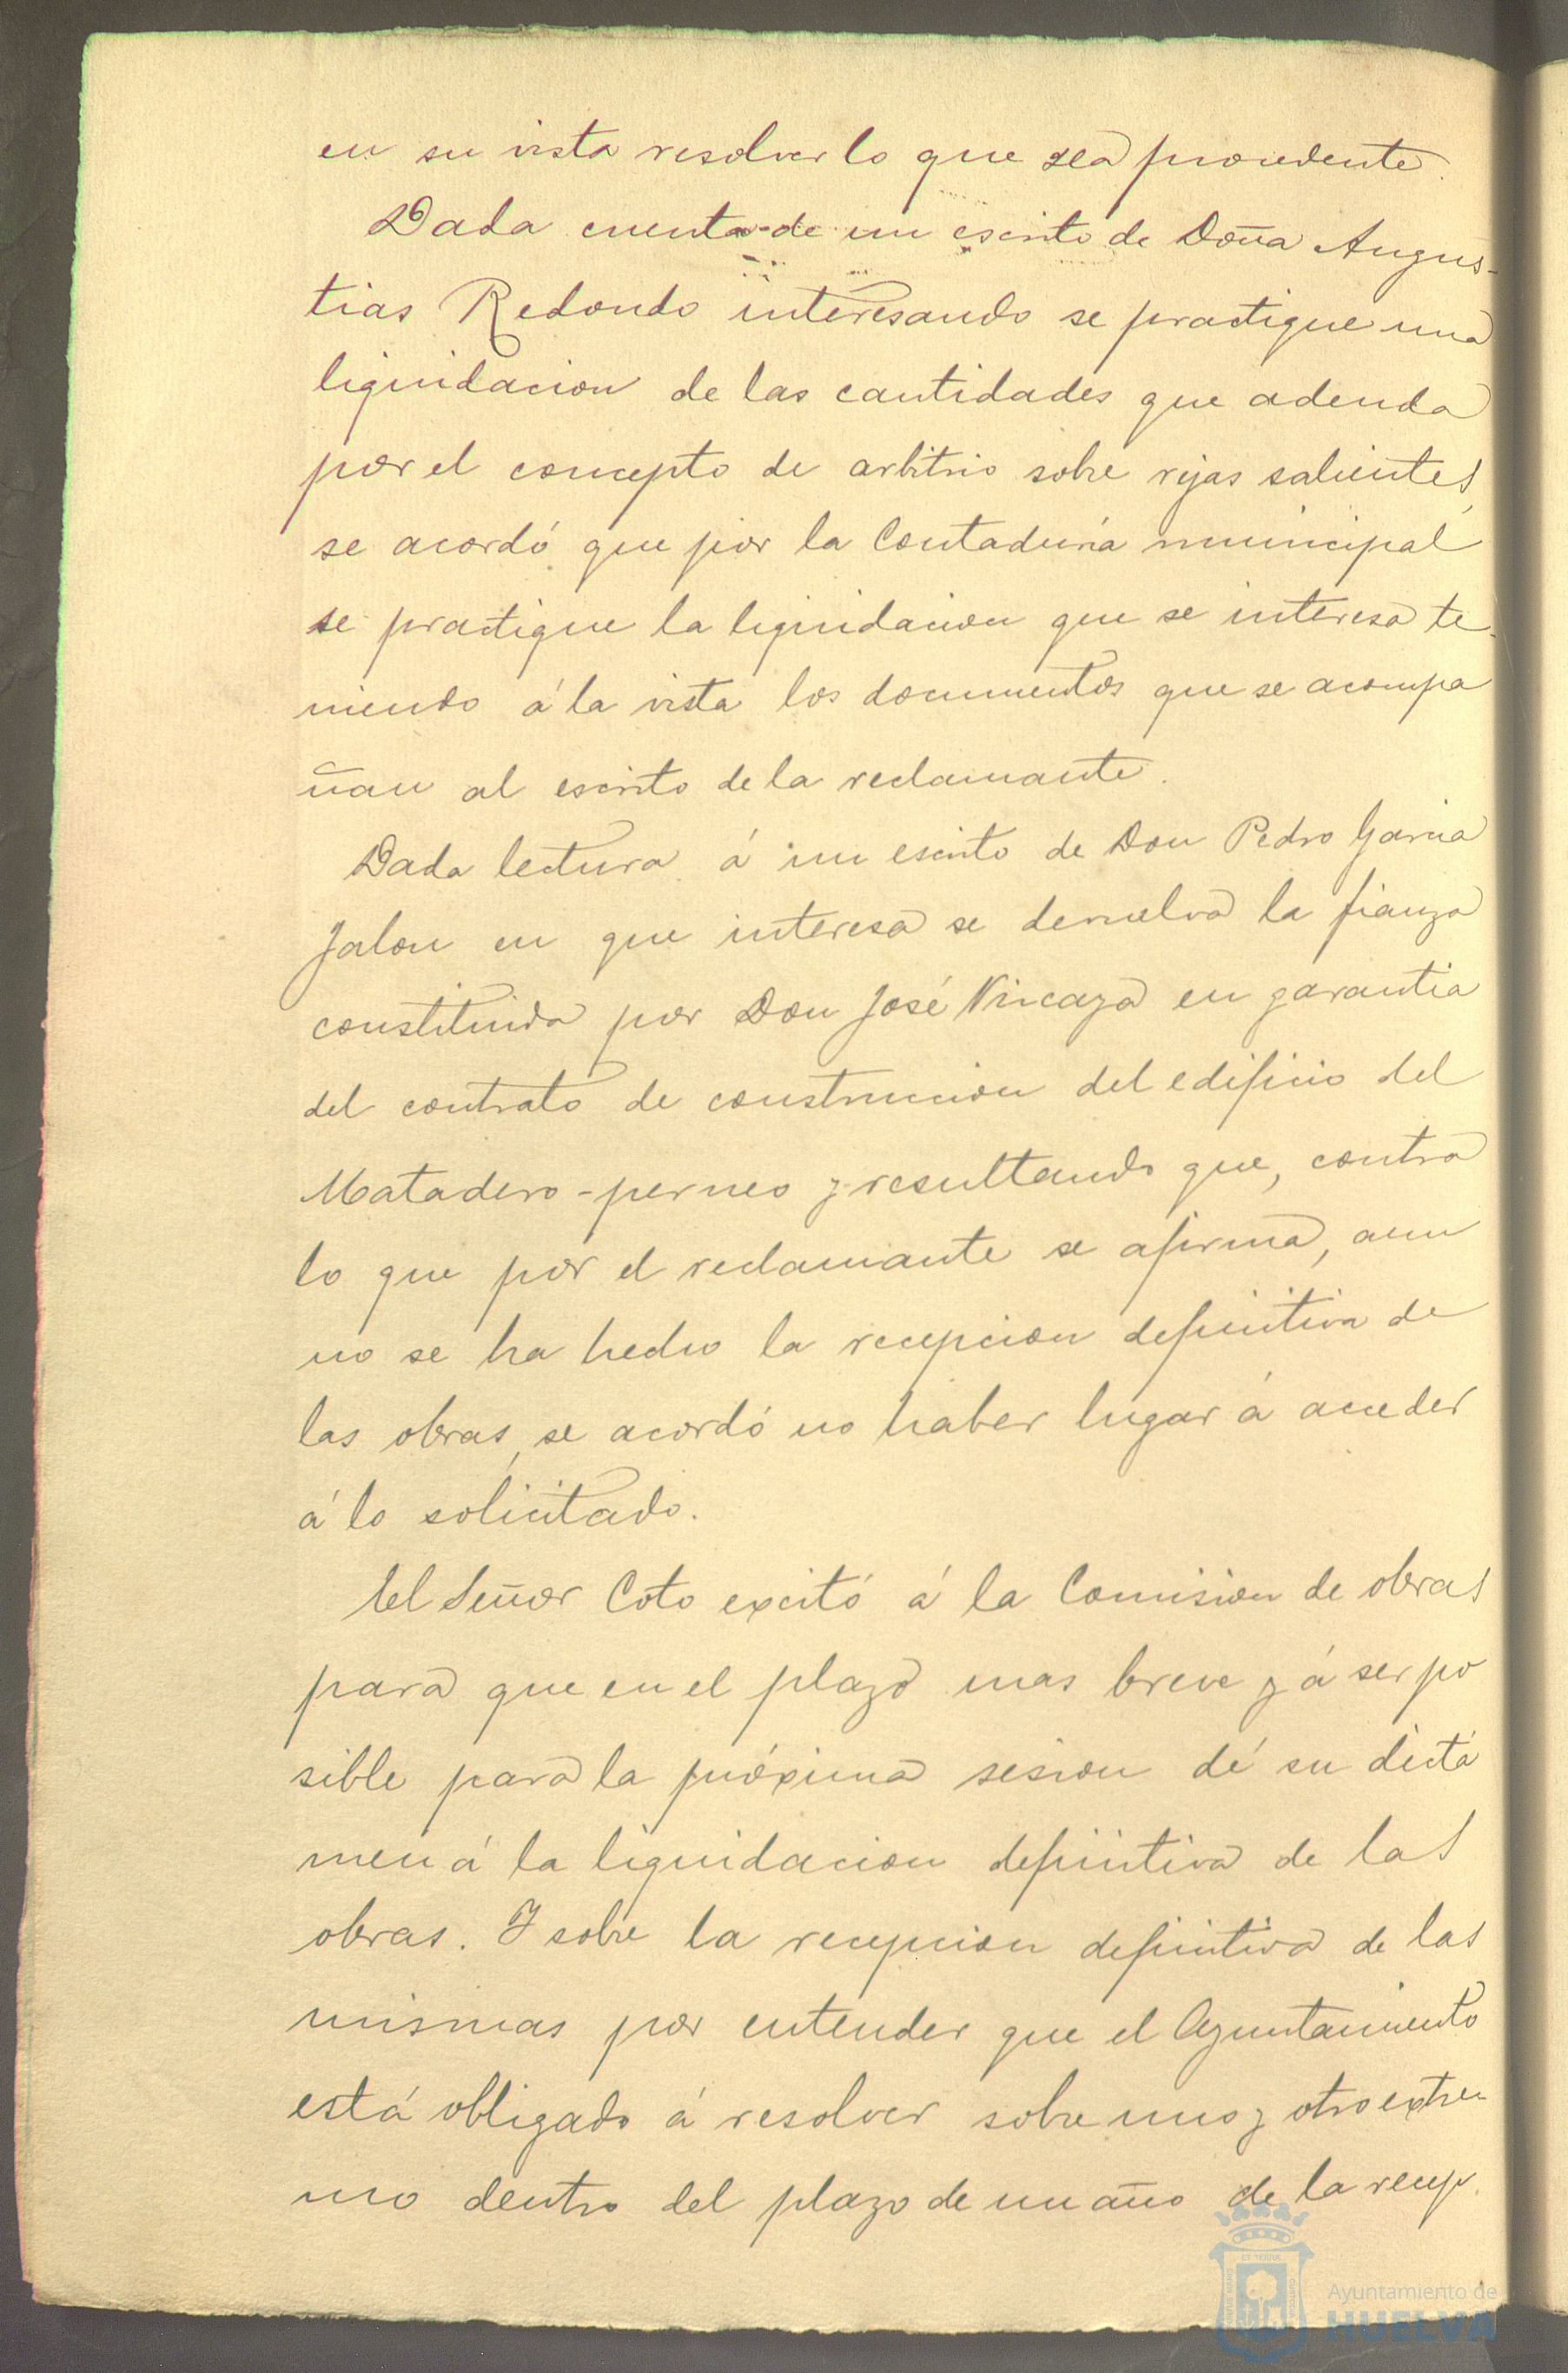 en su vista resolver lo que sea procedente.
Dada cuenta de un escrito de Doña Angus-
tias Redondo interesando se practique una
liquidacion de las cantidades que adeuda
por el concepto de arbitrio sobre rejas salientes,
se acordó que por la Contaduría municipal
se practique la liquidacion que se interesa te-
niendo á la vista los documentos que se acompa
ñan al escrito de la reclamante.
Dada lectura á un escrito de Don Pedro Garcia
Jalon en que interesa se devuelva la fianza
constituida por Don José Vincaza en garantia
del contrato de construccion del edificio del
Matadero-perneo y resultando que, contra
lo que por el reclamante se afirma, aun
no se ha hecho la recepcion definitiva de
las obras, se acordó no haber lugar á acceder
á lo solicitado.
El Señor Coto excitó á la Comision de obras
para que en el plazo mas breve y á ser po
sible para la próxima sesion dé su dictá
men á la liquidacion definitiva de las
obras. Y sobre la recepcion definitiva de las
mismas por entender que el Ayuntamiento
está obligado á resolver sobre uno y otro extre-
mo dentro del plazo de un año de la recep.
Ayuntamiento de
HUELVA